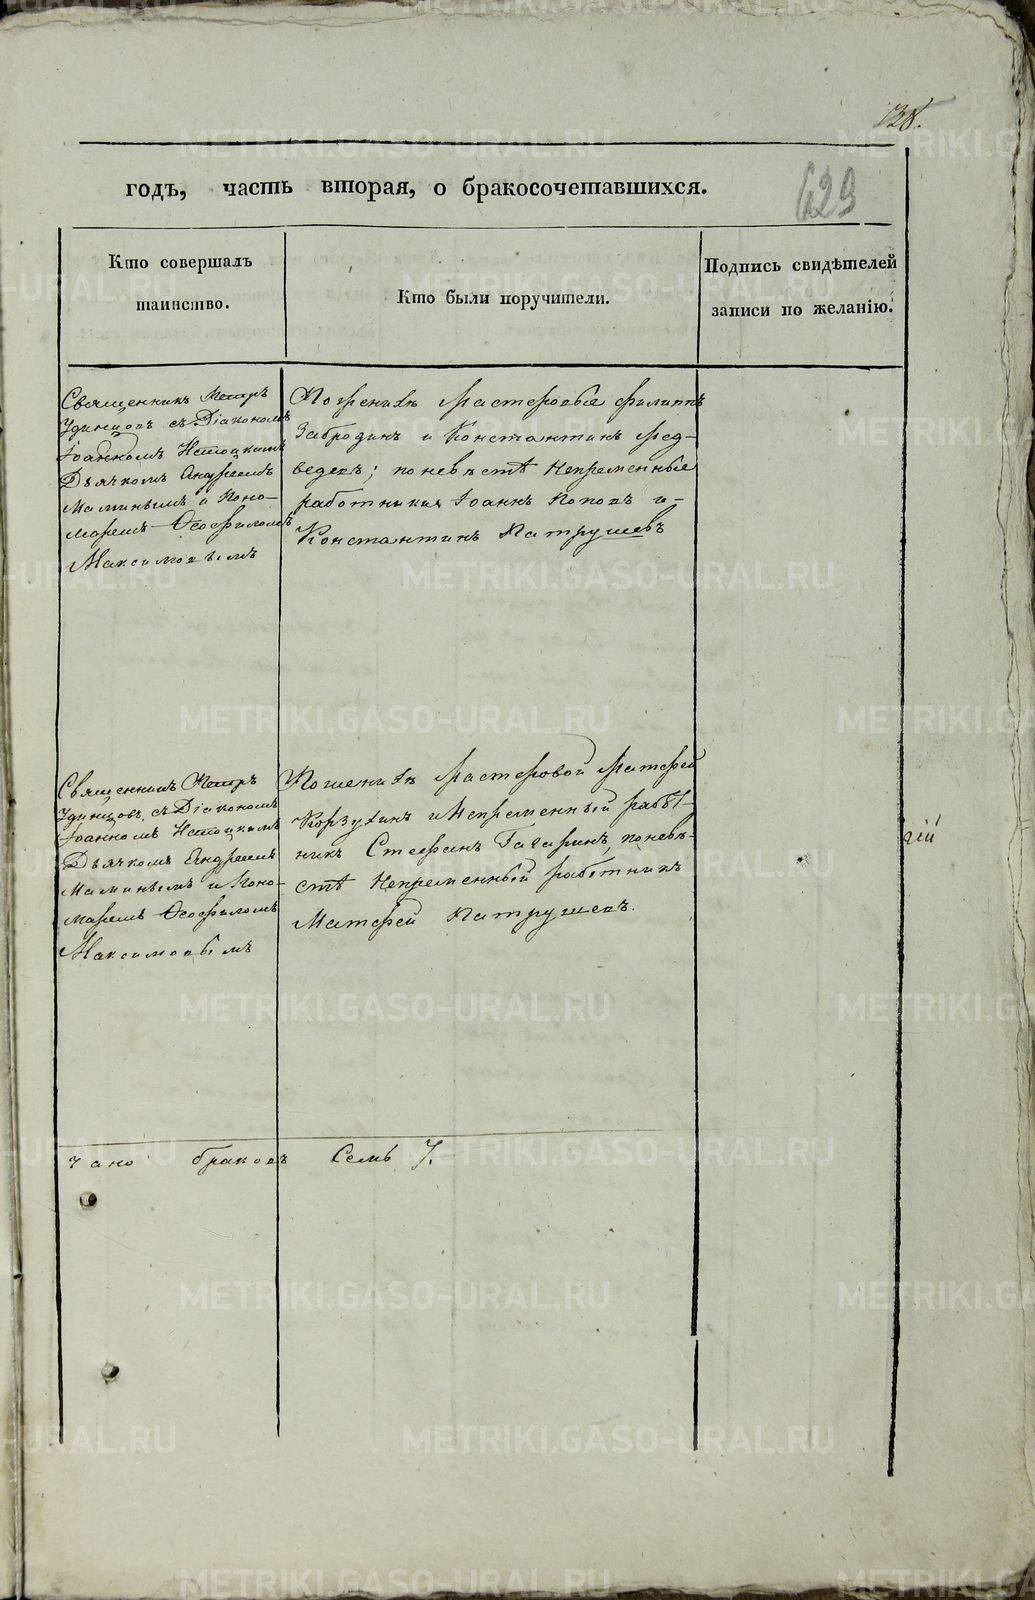 138.
629
годъ, часть вторая, о бракосочетавшихся.
Кто совершалъ
таинство.
Кто были поручители.
Подпись свидѣтелей
записи по желанію.
Священникъ Петръ
Удинцовъ съ Діакономъ
Іоанномъ
Дьячкомъ Андреемъ
Маминымъ и Поно-
маремъ Ѳеофиломъ
Максимовымъ
По женихѣ Мастеровые Филиппъ
Забродинъ и Константинъ Мед-
ведевъ; по невѣстѣ Непременные
работники Іоаннъ Поповъ и
Константинъ Патрушевъ
Священникъ Петръ
Удинцовъ съ Діакономъ
Іоанномъ
Дьячкомъ Андреемъ
Маминымъ и Поно-
маремъ Ѳеофиломъ
Максимовымъ
По женихѣ Мастеровой Матфей
Корзухинъ и Непременный работ-
никъ Стефанъ Гагаринъ, по невѣ-
стѣ Непременный работникъ
Матфей Патрушевъ.
гій
чано браковъ Семь 7.
METRIKI.GASO-URAL.RU